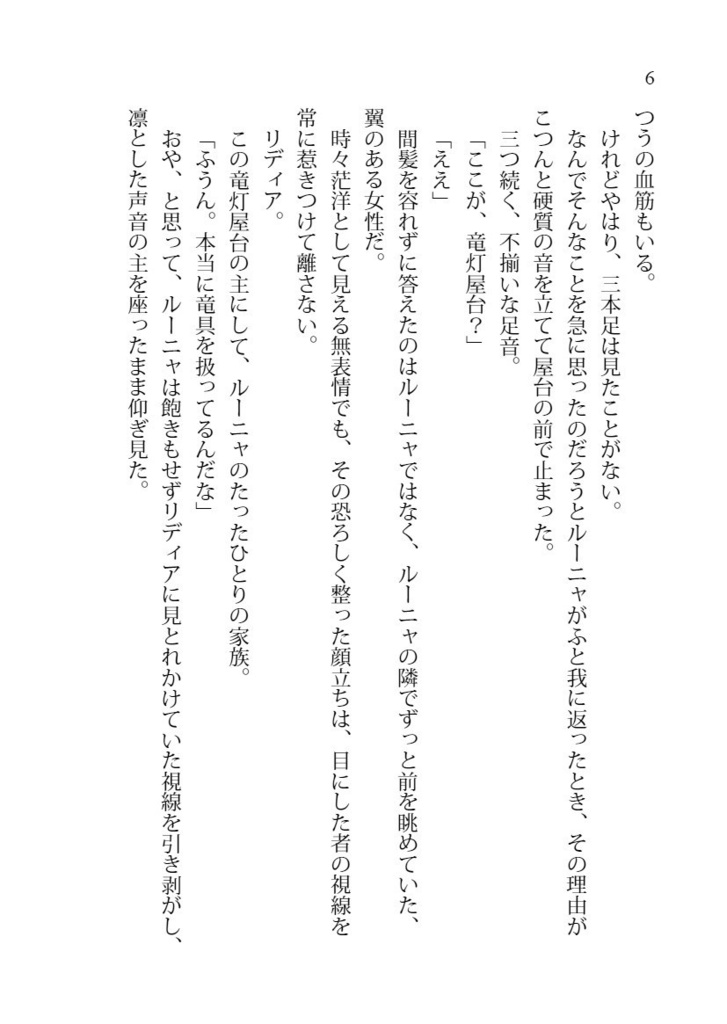 6
つうの血筋もいる。
けれどやはり、三本足は見たことがない。
なんでそんなことを急に思ったのだろうとルーニャがふと我に返ったとき、その理由が
こつんと硬質の音を立てて屋台の前で止まった。
三つ続く、不揃いな足音。
「ここが、竜灯屋台？」
「ええ」
間髪を容れずに答えたのはルーニャではなく、ルーニャの隣でずっと前を眺めていた、
翼のある女性だ。
時々茫洋として見える無表情でも、その恐ろしく整った顔立ちは、目にした者の視線を
常に惹きつけて離さない。
リディア。
この竜灯屋台の主にして、ルーニャのたったひとりの家族。
「ふうん。本当に竜具を扱ってるんだな」
おや、と思って、ルーニャは飽きもせずリディアに見とれかけていた視線を引き剥がし、
凛とした声音の主を座ったまま仰ぎ見た。